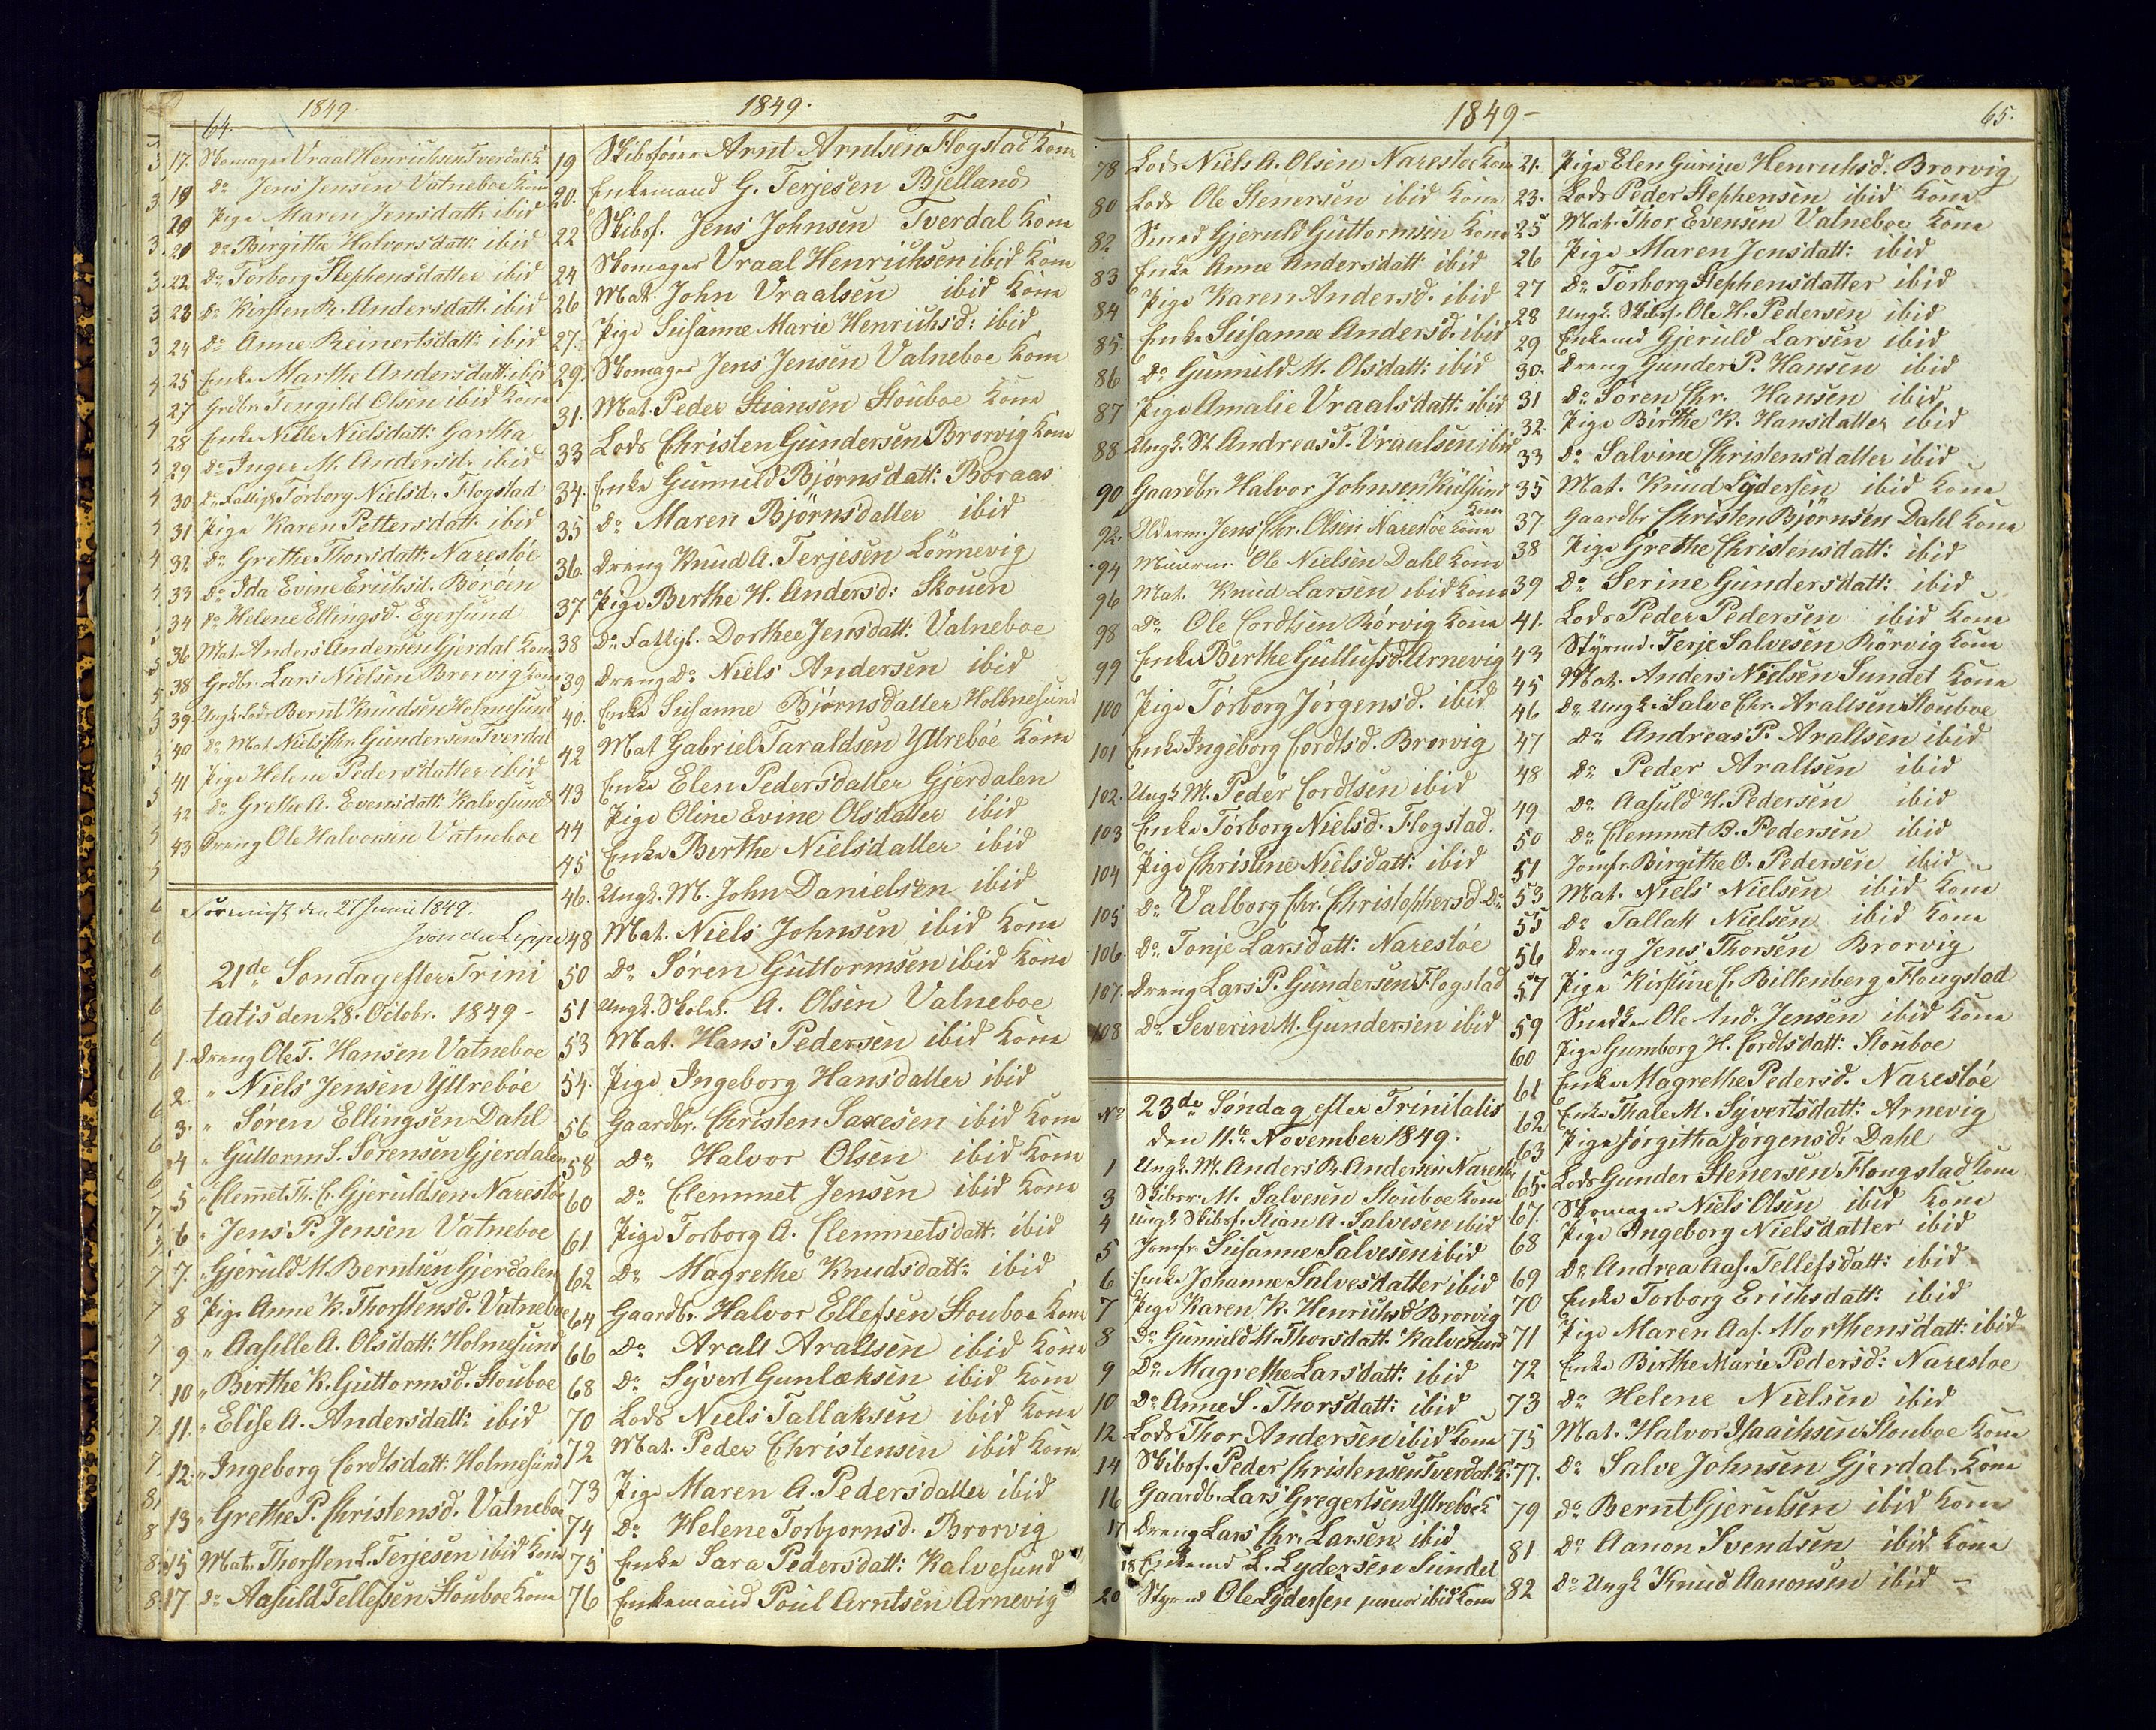 64.
1849.
17. Skomager Vraal Henrichsen Tverdal K.
19 Do Jens Jensen Vatneboe Kone
20 Pige Maren Jensdatt: ibid
21 Do Birgithe Halvorsdatt: ibid
22 Do Torborg Stephensdatter ibid
23 Do Kirsten R. Andersdatt. ibid
24 Do Anne Reinertsdatt: ibid
25 Enke Marthe Andersdatt: ibid
27 Grdbr. Tengild Olsen ibid Kone
28 Enke Nille Nielsdatt: Gartha
29 Do Inger M. Andersd. ibid
30 Do Fattigl. Torborg Nielsd. Flogstad
31 Pige Karen Pettersdatt: ibid
32 Do Grethe Thorsdatt: Narestöe
33 Do Ida Evine Erichsd. Böröen
34 Do Helene Ellingsd. Egersund
36 Mat. Anders Andersen Gjerdal Kone
38 Grdbr. Lars Nielsen Brorvig Kone
39 Ungk. Lods Bernt Knudsen Holmesund
40 Do Mat Niels Chr. Gundersen Tverdal
41 Pige Helene Pedersdatter ibid
42 Do Grethe A. Evensdatt: Kalvesund
43 Dreng Ole Halvorsen Vatneboe
den 27 Junii 1849.
21de Söndag efter Trini
tatis den 28. Octobr. 1849 -
1. Dreng Ole T. Hansen Vatneboe
2 " Niels Jensen Yttreböe
3. " Sören Ellingsen Dahl
4 " Guttorm S. Sörensen Gjerdalen
5 " Clemet Th. C. Gjeruldsen Narestöe
6 " Jens P. Jensen Vatneboe
7. " Gjeruld M. Berntsen Gjerdalen
8 Pige Anne K. Thorstensd. Vatneboe
9 " Aasille A. Olsdatt: Holmesund
10 " Birthe K. Guttormsd. Stouboe
11. " Elise A. Andersdatt: ibid
12. " Ingeborg Cordtsdatt: Holmesund
13 " Grethe P. Christensd. Vatneboe
15 Mat. Thorsten L. Terjesen ibid Kone
17. Do Aasuld Tellefsen Stouboe Kone
1849.
19 Skibsförer Arnt Arntsen Flogstad Kone
20. Enkemand G. Terjesen Bjelland
22 Skibsf. Jens Johnsen Tverdal Kone
24 Skomager Vraal Henrichsen ibid Kone
26 Mat. John Vraalsen ibid Kone
27. Pige Susanne Marie Henrichsd: ibid
29. Skomager Jens Jensen Vatneboe Kone
31. Mat. Peder Stiansen Stouboe Kone
33 Lods Christen Gundersen Brorvig Kone
34. Enke Gunnild Björnsdatt: Boraas
35 Do Maren Björnsdatter ibid
36. Dreng Knud A. Terjesen Lönnevig
37. Pige Berthe H. Andersd: Skouen
38 Do Fattigl. Dorthee Jensdatt: Vatneboe
39 Dreng Do Niels Andersen ibid
40. Enke Susanne Björnsdatter Holmesund
42 Mat Gabriel Taraldsen Yttreböe Kone
43 Enke Elen Pedersdatter Gjerdalen
44 Pige Oline Evine Olsdatter ibid
45 Enke Berthe Nielsdatter ibid
46. Ungk. M. John Danielsen ibid
48 Mat. Niels Johnsen ibid Kone
50 Do Sören Guttormsen ibid Kone
51 Ungk. Skolel. A. Olsen Vatneboe
53 Mat. Hans Pedersen ibid Kone
54. Pige Ingeborg Hansdatter ibid
56 Gaardbr. Christen Saxesen ibid Kone
58 Do Halvor Olsen ibid Kone
60 Do Clemmet Jensen ibid Kone
61 Pige Torborg A. Clemmetsdatt. ibid
62 Do Magrethe Knudsdatt: ibid
64 Gaardbr. Halvor Ellefsen Stouboe Kone
66 Do Aralt Araltsen ibid Kone
68 Do Syvert Gunlæksen ibid Kone
70 Lods Niels Tallaksen ibid Kone
72 Mat. Peder Christensen ibid Kone
73 Pige Maren A. Pedersdatter ibid
74 Do Helene Torbjornsd. Brorvig
75 Enke Sara Pedersdatt: Kalvesund
76 Enkemand Poul Arntsen Arnevig
1849 -
65.
78 Lods Niels A. Olsen Narestöe Kone
80 Lods Ole Stenersen ibid Kone
82 Smed Gjeruld Guttormsen Kone
83 Enke Anne Andersdatt ibid
84 Pige Karen Andersd. ibid
85. Enke Susanne Andersd. ibid
86 Do Gunnild M. Olsdatt: ibid
87 Pige Amalie Vraalsdatt: ibid
88 Ungk. St. Andreas T. Vraalsen ibid
90 Gaardbr. Halvor Johnsen Kone
92. Olderm. Jens Chr. Olsen Narestöe Kone
94 Muurm. Ole Nielsen Dahl Kone
96 Mat. Knud Larsen ibid Kone
98 Do Ole Cordtsen Rörvig Kone
99 Enke Berthe Gullufsd. Arnevig
100 Pige Torborg Jörgensd. ibid
101 Enke Ingeborg Cordtsd. Brorvig
102. Ungk. M. Peder Cordtsen ibid
103 Enke Torborg Nielsd. Flogstad.
104 Pige Christine Nielsdatt: ibid
105 Do Valborg Chr. Christophersd. Do
106. Do Tonje Larsdatt: Narestöe
107. Dreng Lars P. Gundersen Flogstad
108 Do Severin M. Gundersen ibid
No 23de Söndag efter Trinitatis
den 11te November 1849.
1 Ungk. M. Anders R. Andersen Narestöe
3 Skibsr. M. Salvesen Stouboe Kone
4 Ungk. Skibsf. Stian A. Salvesen ibid
5 Jomfr. Susanne Salvesen ibid
6 Enke Johanne Salvesdatter ibid
7 Pige Karen K. Henrichsd. Brorvig
8 Do Gunnild M. Thorsdatt. Kalvesund
9 Do Magrethe Larsdatt: ibid
10 Do Anne S. Thorsdatt: ibid
12 Lods Thor Andersen ibid Kone
14 Skibsf. Peder Christensen Tverdal K.
16 Gaardb. Lars Gregertsen Yttreböe K
17 Dreng Lars Chr. Larsen ibid
18 Enkemd L. Lydersen Sundet
20 Styrmd Ole Lydersen junior ibid Kone
21. Pige Elen Gurine Henrichsd. Brorvig
23. Lods Peder Stephensen ibid Kone
25 Mat. Thor Evensen Vatneboe Kone
26 Pige Maren Jensdatt: ibid
27 Do Torborg Stephensdatter ibid
28 Ungk. Skibsf. Ole H. Pedersen ibid
29 Enkemd Gjeruld Larsen ibid
30. Dreng Gunder P. Hansen ibid
31 Do Sören Chr. Hansen ibid
32. Pige Birthe K. Hansdatter ibid
33 Do Salvine Christensdatter ibid
35 Mat. Knud Lydersen ibid Kone
37. Gaardbr Christen Björnsen Dahl Kone
38 Pige Grethe Christensdatt: ibid
39 Do Serine Gundersdatt: ibid
41. Lods Peder Pedersen ibid Kone
43 Styrmd. Terje Salvesen Rörvig Kone
45 Mat. Anders Nielsen Sundet Kone
46 Do Ungk. Salve Chr. Araltsen Stouboe
47 Do Andreas P. Araltsen ibid
48 Do Peder Araltsen ibid
49 Do Aasuld H. Pedersen ibid
50 Do Clemmet B. Pedersen ibid
51 Jomfr. Birgithe O. Pedersen ibid
53 Mat. Niels Nielsen ibid Kone
55 Do Tallak Nielsen ibid Kone
56 Dreng Jens Thorsen Brorvig
57 Pige Kirstine C. Biltenberg Flougstad
59 Snedker Ole And. Jensen ibid Kone
60 Pige Gumborg H. Cordtsdatt: Stouboe
61 Enke Magrethe Pedersd. Narestöe
62 Enke Thale M. Syvertsdatt: Arnevig
63 Pige Jörgitha Jörgensd. Dahl
65. Lods Gunder Stenersen Flougstad Kone
67. Skomager Niels Olsen ibid Kone
68 Pige Ingeborg Nielsdatter ibid
69 Do Andrea Aas. Tellefsdatt: ibid
70 Enke Torborg Erichsdatt: ibid
71 Pige Maren Aas. Morthensdatt: ibid
72 Enke Birthe Marie Pedersd: Narestoe
73 Do Helene Nielsen ibid
75 Mat. Halvor Isaachsen Stouboe Kone
77. Do Salve Johnsen Gjerdal. Kone
79 Do Bernt Gjerulsen ibid Kone
81 Do Aanon Svendsen ibid Kone
82 Do Ungk Knud Aanonsen ibid -